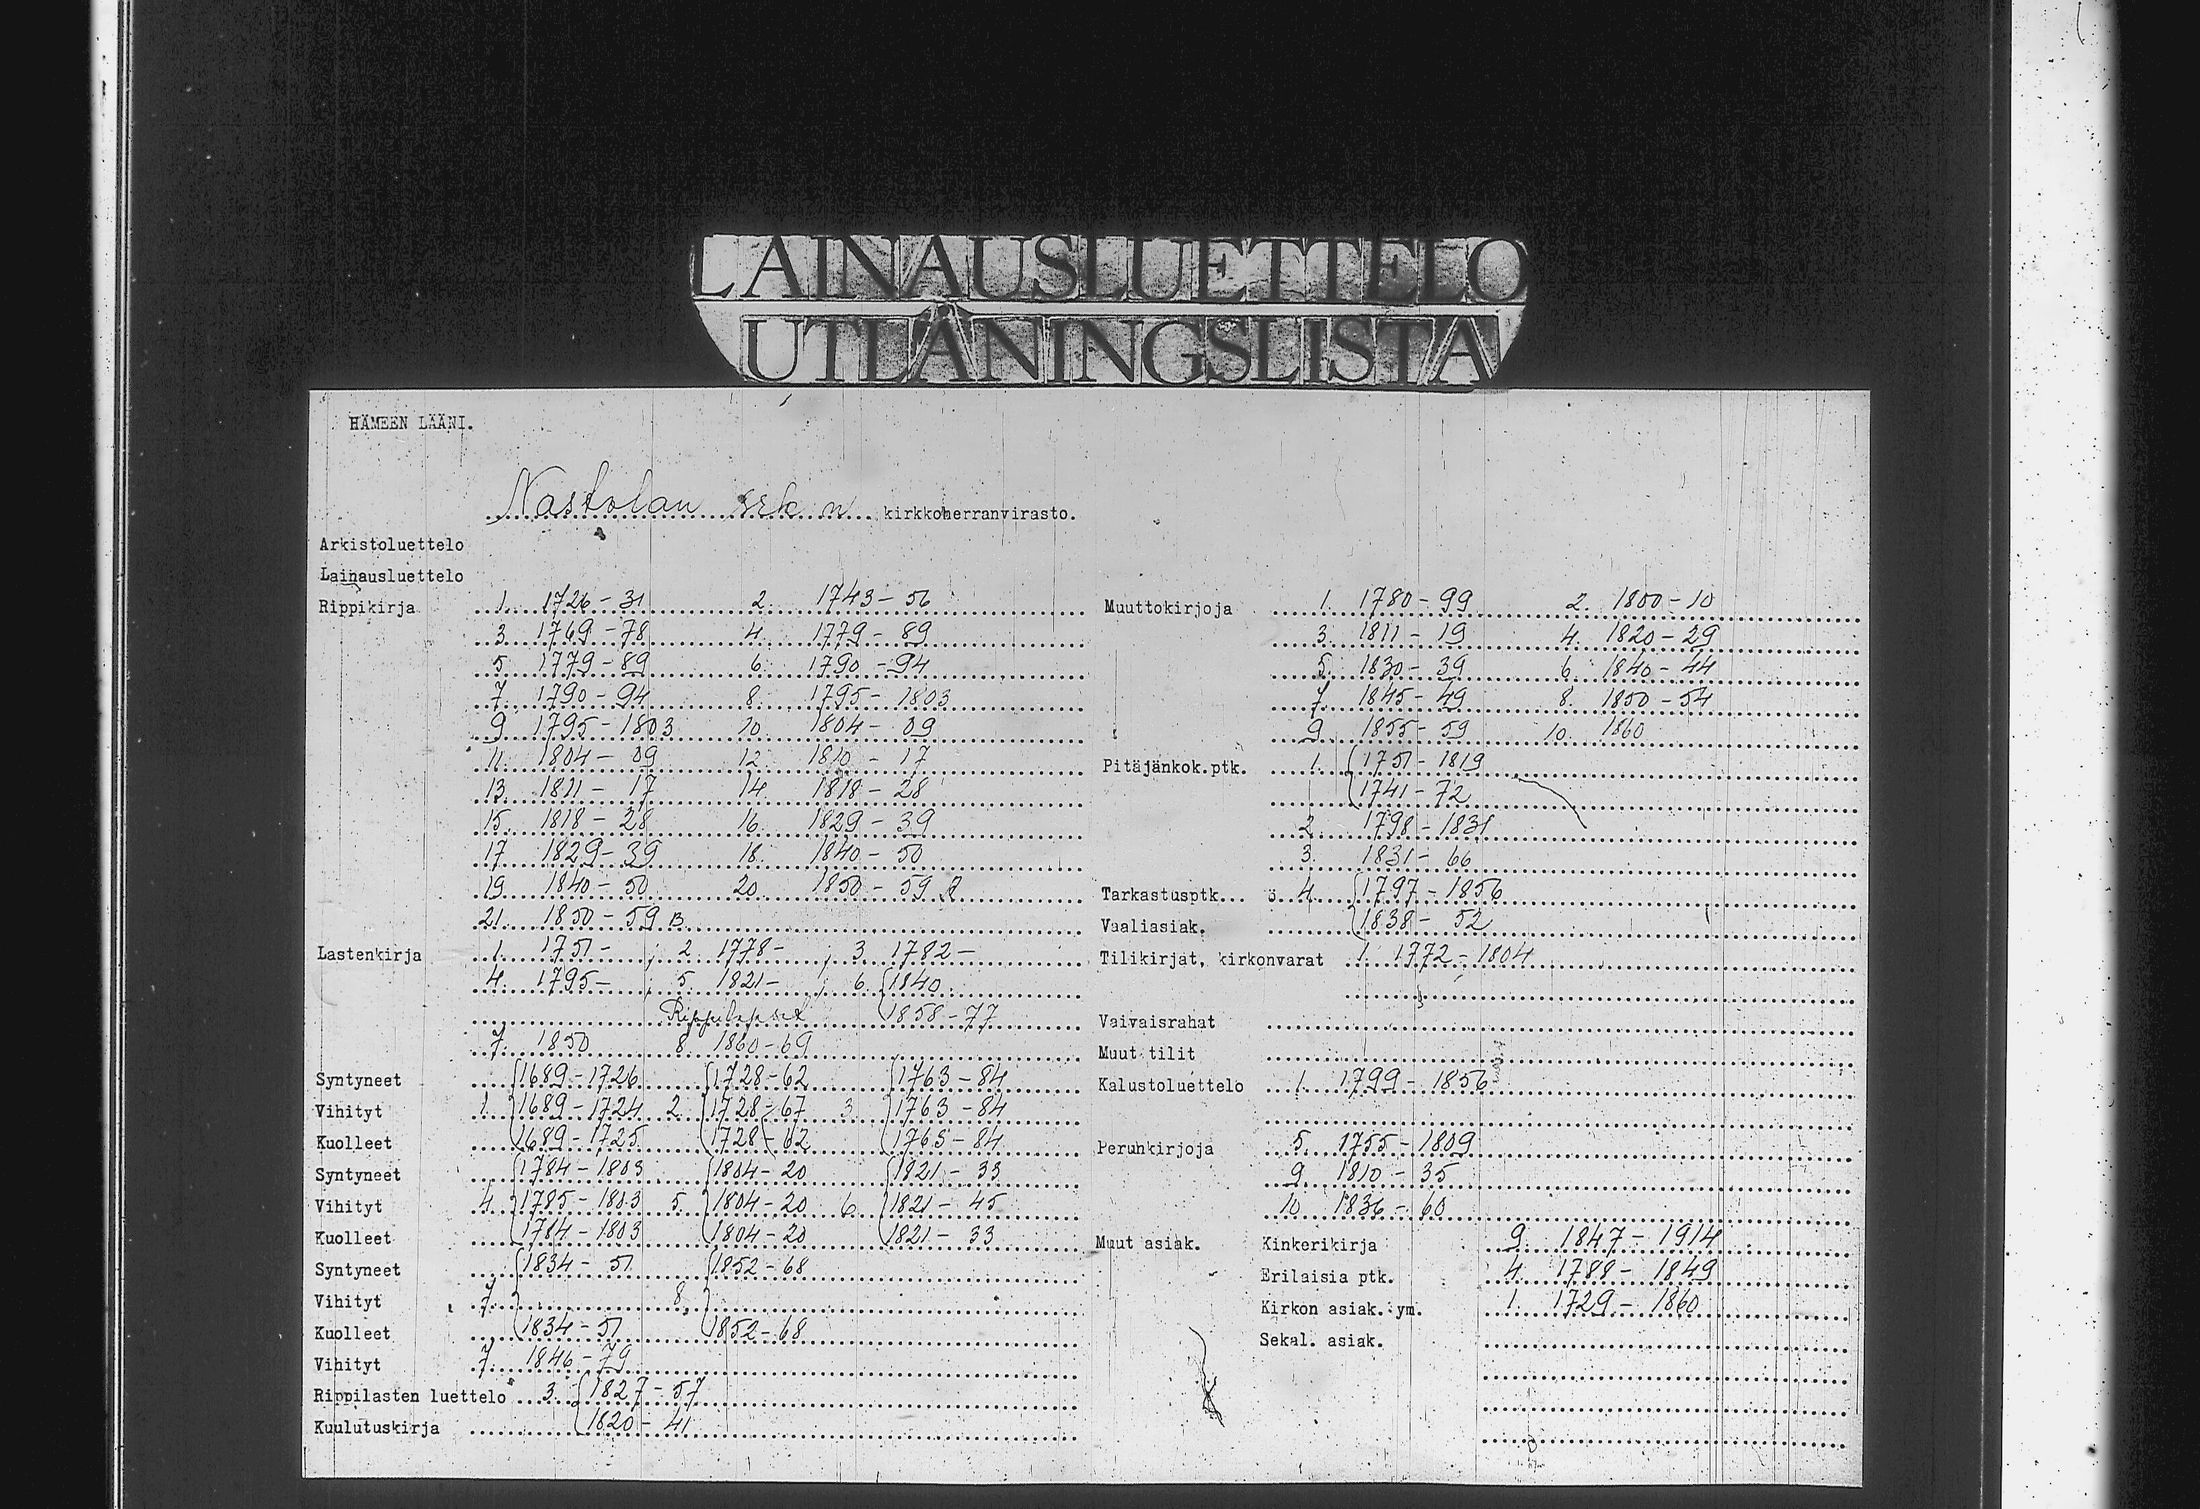 LAINAUSLUETTELO
UTLÅNINGSLISTA
HÄMEEN LÄÄNI.
Nastolan srk n kirkkoherranvirasto.
Arkistoluettelo
Lainausluettelo
Rippikirja 1. 1726-31 2. 1743-56
3. 1769-78 4. 1779-89
5. 1779-89 6. 1790-94
7. 1790-94 8. 1795-1803
9. 1795-1803 10. 1804-09
11. 1804-09 12. 1810-17
13. 1811-17 14. 1818-28
15. 1818-28 16. 1829-39
17. 1829-39 18. 1840-50
19. 1840-50 20. 1850-59
21. 1850-59 B.
Lastenkirja 1. 1751-; 2. 1778-; 3. 1782-
4. 1795-; 5. 1821-; 6. 1840
1858-77
7. 1850 8. 1860-69
Syntyneet 1689-1726 1728-62 1763-84
Vihityt 1. 1689-1724 2. 1728-67 3. 1763-84
Kuolleet 1689-1725 1728-62 1763-84
Syntyneet 1784-1803 1804-20 1821-33
Vihityt 4. 1785-1803 5. 1804-20 6. 1821-45
Kuolleet 1784-1803 1804-20 1821-33
Syntyneet 1834-51 1852-68
Vihityt 7. 8.
Kuolleet 1834-51 1852-68
Vihityt 7. 1846-79
Rippilasten luettelo 3. 1827-57
Kuulutuskirja 1820-41
Muuttokirjoja 1. 1780-99 2. 1800-10
3. 1811-19 4. 1820-29
5. 1830-39 6. 1840-44
7. 1845-49 8. 1850-54
9. 1855-59 10. 1860
Pitäjänkok.ptk. 1. 1751-1819
1741-72
2. 1798-1831
3. 1831-66
Tarkastusptk... ö 4. 1797-1856
Vaaliasiak. 1838-52
Tilikirjat, kirkonvarat 1. 1772-1804
Vaivaisrahat
Muut tilit
Kalustoluettelo 1. 1799-1856
Perunkirjoja 5. 1755-1809
9. 1810-35
10. 1836-60
Muut asiak. Kinkerikirja 9. 1847-1914
Erilaisia ptk. 4. 1788-1849
Kirkon asiak. ym. 1. 1729-1860
Sekal. asiak.